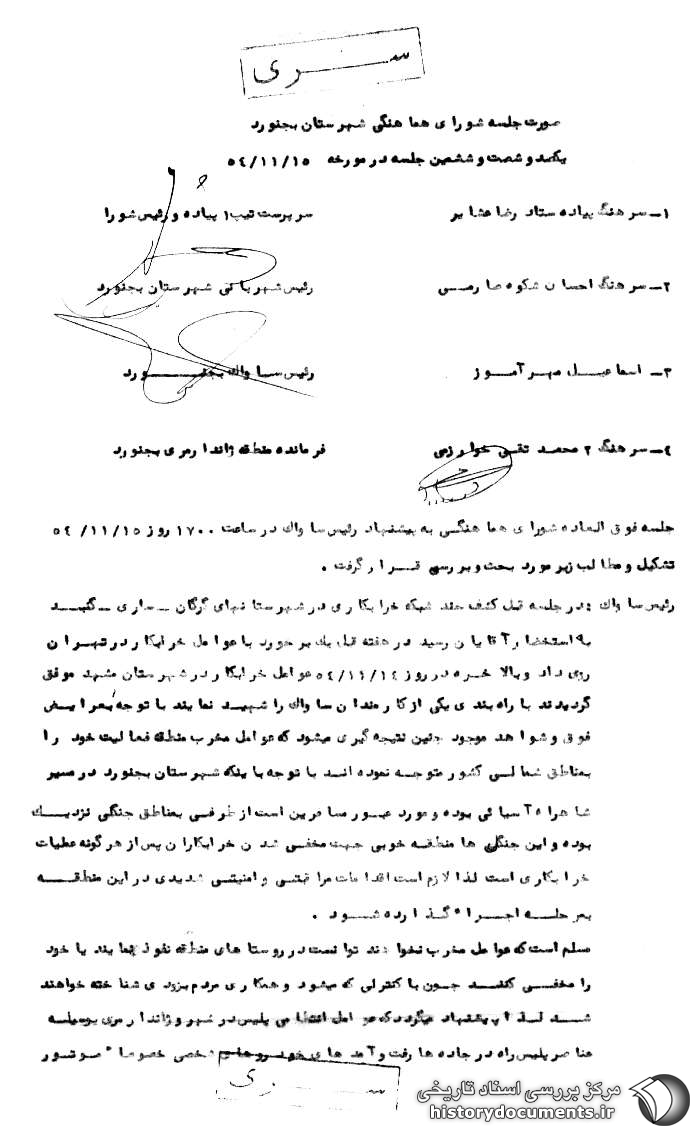 ســری
صورت جلسه شورای هماهنگی شهرستان بجنورد
یکصد و شصت و ششمین جلسه در مورخه ۵٤/۱۱/۱۵
۱ـ سرهنگ پیاده ستاد رضا عشایر سرپرست تیپ۱ پیاده و رئیس شورا
۲ـ سرهنگ احسان شکوه صارمی رئیس شهربانی شهرستان بجنورد
۳ـ اسماعیل مهرآموز رئیس ساواک بجنورد
٤ـ سرهنگ ۲ محمد تقی خوارزمی فرمانده منطقه ژاندارمری بجنورد
جلسه فوق العاده شورای هماهنگی به پیشنهاد رئیس ساواک در ساعت ۱۷۰۰ روز ۵٤/۱۱/۱۵
تشکیل و مطالب زیر مورد بحث و بررسی قرار گرفت .
رئیس ساواک : در جلسه قبل کشف چند شبکه خرابکاری در شهرستانهای گرگان ـ ساری ـ گنبد
به استحضار آقایان رسید در هفته قبل یک برخورد با عوامل خرابکار در تهران
روی داد و بالاخره در روز ۵٤/۱۱/۱٤ عوامل خرابکار در شهرستان مشهد موفق
گردیدند با راه بندی یکی از کارمندان ساواک را شهید نمایند با توجه بعرایض
فوق و شواهد موجود چنین نتیجه گیری میشود که عوامل مخرب منطقه فعالیت خود را
بمناطق شمالی کشور متوجه نموده اند با توجه باینکه شهرستان بجنورد در مسیر
شاهراه آسیائی بوده و مورد عبور مسافرین است از طرفی بمناطق جنگلی نزدیک
بوده و این جنگل ها منطقه خوبی جهت مخفی شدن خرابکاران پس از هر گونه عملیات
خرابکاری است لذا لازم است اقدامات مراقبتی و امنیتی شدیدی در این منطقه
بمرحله اجراء گذارده شود .
مسلم است که عوامل مخرب نخواهند توانست در روستاهای منطقه نفوذ نمایند یا خود
را مخفی کنند چون با کنترلی که میشود و همکاری مردم بزودی شناخته خواهند
شد لذا پیشنهاد میگردد که عوامل انتظامی پلیس در شهر و ژاندارمری بوسیله
عناصر پلیس راه در جاده ها رفت و آمدهای خودروهای شخصی خصوصا" موتور
ســری
مرکز بررسی اسناد تاریخی
historydocuments.ir